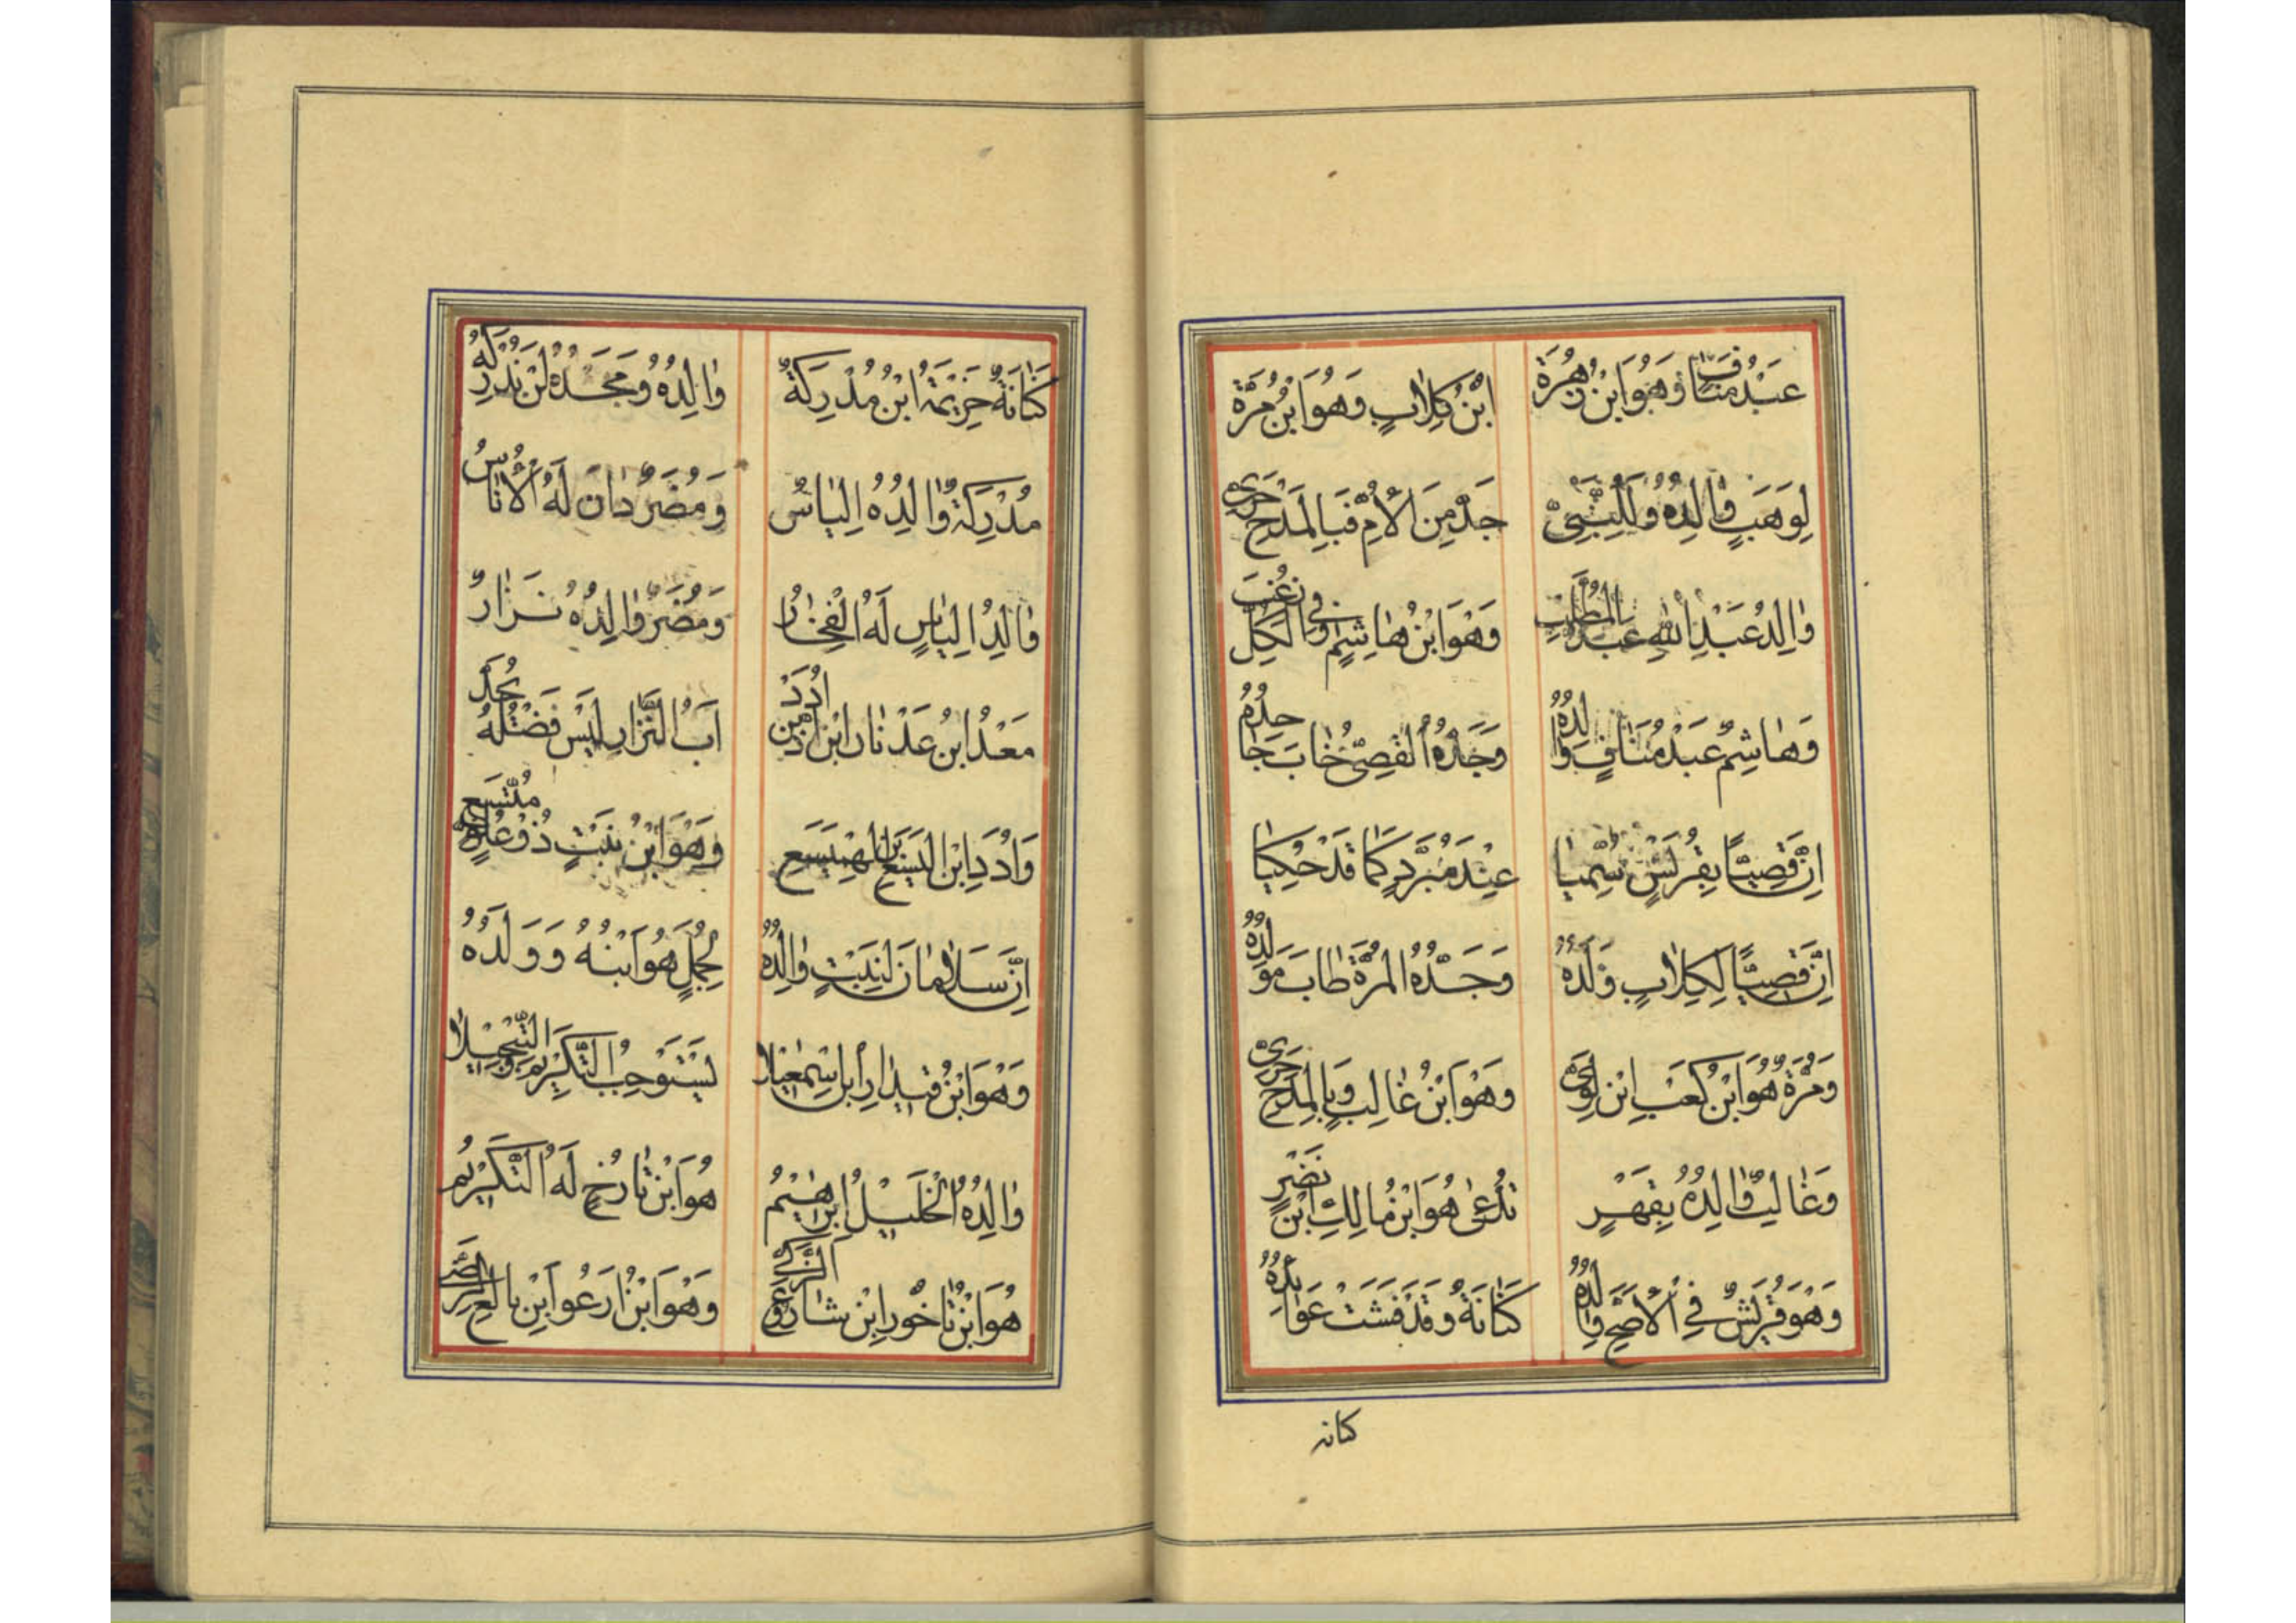 عَبْدُ مَنَافٍ وَهُوَ ابْنُ زُهْرَةْ ابْنُ كِلَابٍ وَهُوَ ابْنُ مُرَّةْ
لِوَهَبٍ وَالِدُهُ وَلِلنَّبِيْ جَدٌّ مِنَ الْأُمِّ فَبِالْمَدْحِ حَرِيْ
وَالِدُ عَبْدِ اللهِ عَبْدُ الْمُطَّلِبِ وَهُوَ ابْنُ هَاشِمٍ وَفِي الْكُلِّ
وَهَاشِمٌ عَبْدُ مُنَافٍ وَالِدُهُ وَجَدُّهُ الْقُصِيُّ خَابَ جَاحِدُهُ
اِنَّ قُصِيًّا بِقُرَيْشٍ سُمِّيَا عِنْدَ مُبَرَّدٍ كَمَا قَدْ حُكِيَا
اِنَّ قُصِيًّا لِكِلَابٍ وَلَدُهُ وَجَدُّهُ الْمُرَّةُ طَابَ مَوْلِدُهُ
وَمُرَّةُ هُوَ ابْنُ كَعْبِ ابْنِ لُؤَيْ وَهُوَ ابْنُ غَالِبٍ وَبِالْمَدْحِ حَرِيْ
وَغَالِبٌ وَالِدُهُ بِفِهْرٍ تُدْعٰى هُوَ ابْنُ مَالِكِ ابْنِ نَضْرٍ
وَهُوَ قُرَيْشٌ فِي الْأَصَحِّ وَالِدُهُ كَنَانَةُ وَقَدْ فَشَتْ عَوَائِدُهُ
كنانه
كَنَانَةُ خَزِيْمَةُ ابْنُ مُدْرِكَةٌ وَالِدُهُ وَمَجْدُهُ لَنْ نُدْرِكَهُ
مُدْرِكَةٌ وَالِدُهُ اِلْيَاسُ وَمُضَرٌ دَانَ لَهُ الْأُنَاسُ
وَالِدُ اِلْيَاسٍ لَهُ الْفَخَارُ وَمُضَرٌ وَالِدُهُ نَزَارٌ
مَعَدُ ابْنُ عَدْنَانَ ابْنِ اُدِّ بْنِ اُدَدْ اَبُ النَّزَارِ لَيْسَ فَضْلُهُ يُحَدْ
وَاُدَدِ ابْنِ الْيَسَعِ بْنِ الْهَمَيْسَعِ وَهُوَ ابْنُ نَبَتٍ ذُوْ عُلُوٍّ مُتَّسِعِ
اِنَّ سَلَامَانَ لِنَبَتٍ وَالِدُهُ لِجُمَلٍ هُوَ ابْنُهُ وَوَلَدُهُ
وَهُوَ ابْنُ قَيْدَارِ ابْنِ اِسْمٰعِيْلَا يَسْتَوْجِبُ التَّكْرِيْمَ وَالتَّبْجِيْلَا
وَالِدُهُ الْخَلِيْلُ اِبْرٰهِيْمُ هُوَ ابْنُ تَارُخٍ لَهُ التَّكْرِيْمُ
هُوَ ابْنُ نَاخُوْرِ ابْنِ شَارُوْغِ وَهُوَ ابْنُ ارَعُو ابْنِ بَالَعِ